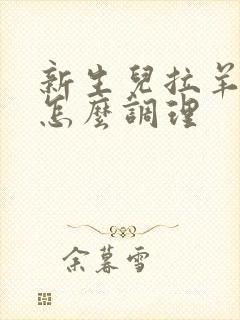 新生兒拉羊
怎麼調理
余暮雪